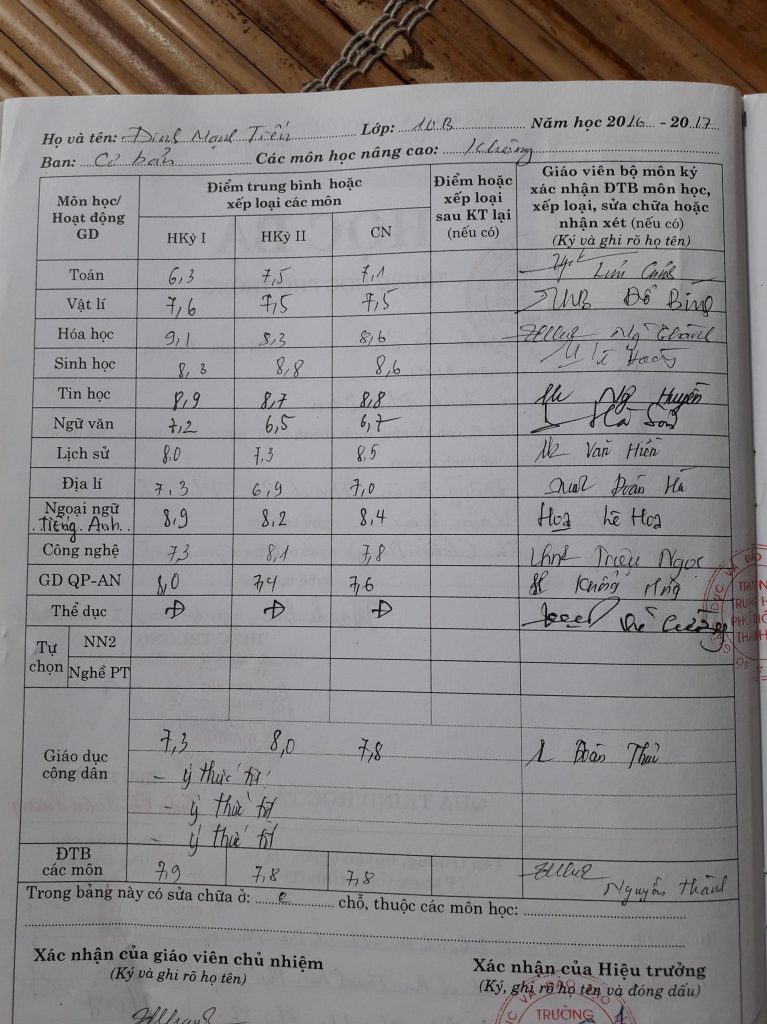 Họ và tên: Đinh Mạnh Tiến Lớp: 10B Năm học 2016 - 2017
Ban: Cơ bản Các môn học nâng cao: Không
Môn học/ Hoạt động GD
Điểm trung bình hoặc xếp loại các môn
HKỳ I HKỳ II CN
Điểm hoặc xếp loại sau KT lại (nếu có)
Giáo viên bộ môn ký xác nhận ĐTB môn học, xếp loại, sửa chữa hoặc nhận xét (nếu có)
(Ký và ghi rõ họ tên)
Toán 6,3 7,5 7,1
Vật lí 7,6 7,5 7,5
Hóa học 9,1 8,3 8,6
Sinh học 8,3 8,8 8,6
Tin học 8,9 8,7 8,8 Ng Huyền
Ngữ văn 7,2 6,5 6,7
Lịch sử 8,0 7,3 8,5 Văn Hiến
Địa lí 7,3 6,9 7,0 Đoàn Hà
Ngoại ngữ Tiếng Anh 8,9 8,2 8,4 Hoa Lê Hoa
Công nghệ 7,3 8,1 7,8 Triệu Ngọc
GD QP-AN 8,0 7,4 7,6
Thể dục Đ Đ Đ
Tự chọn NN2
Nghề PT
Giáo dục công dân 7,3 8,0 7,8
- ý thức tốt
- ý thức tốt
- ý thức tốt
ĐTB các môn 7,9 7,8 7,8 Nguyễn Thành
Trong bảng này có sửa chữa ở: chỗ, thuộc các môn học:
Xác nhận của giáo viên chủ nhiệm
(Ký và ghi rõ họ tên)
Xác nhận của Hiệu trưởng
(Ký, ghi rõ họ tên và đóng dấu)
TRƯỜNG